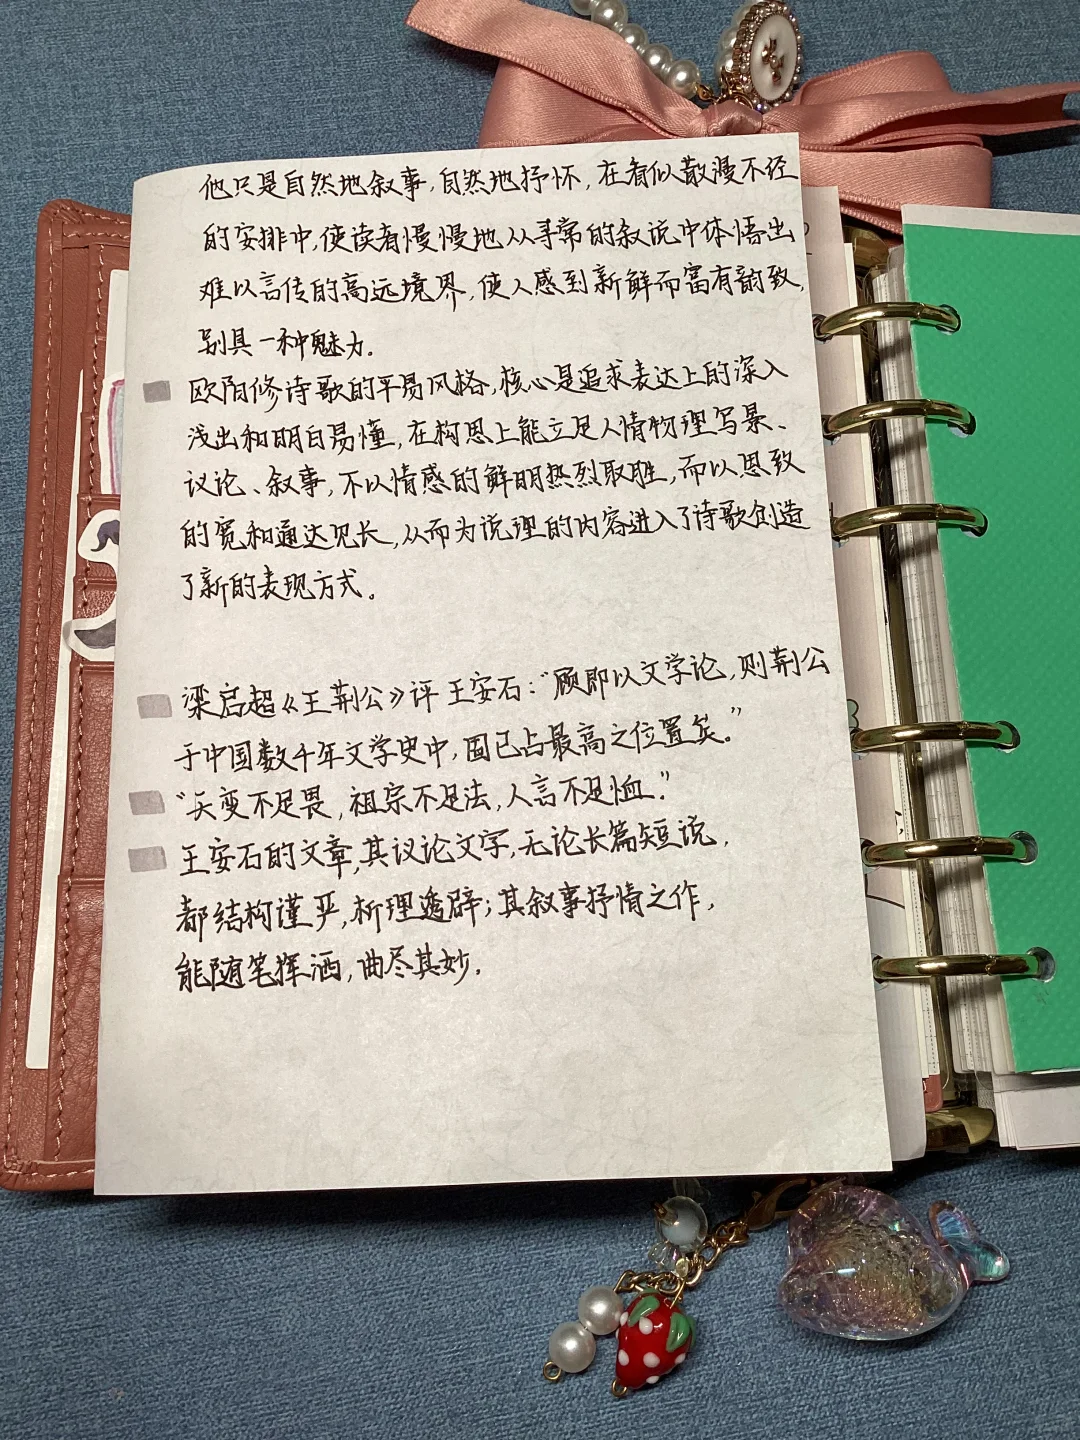 他只是自然地叙事，自然地抒怀，在看似散漫不经
的安排中，使读者慢慢地从寻常的叙说中体悟出
难以言传的高远境界，使人感到新鲜而富有韵致，
别具一种魅力。
欧阳修诗歌的平易风格，核心是追求表达上的深入
浅出和明白易懂，在构思上能立足人情物理写景、
议论、叙事，不以情感的鲜明热烈取胜，而以思致
的宽和通达见长，从而为说理的内容进入了诗歌创造
了新的表现方式。
梁启超《王荆公》评王安石：“顾即以文学论，则荆公
于中国数千年文学史中，固已占最高之位置矣。”
“天变不足畏，祖宗不足法，人言不足恤。”
王安石的文章，其议论文字，无论长篇短说，
都结构谨严，析理透辟；其叙事抒情之作，
能随笔挥洒，曲尽其妙。